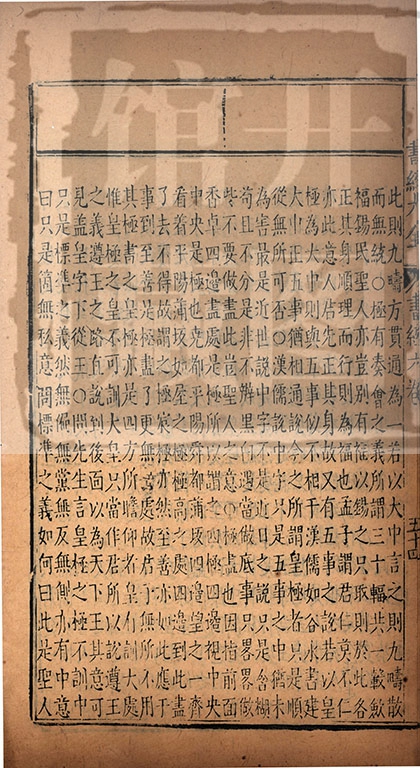 此則九疇方貫通為一若以大中言之則九疇散
而無統○極有奏會之義所謂三十輻共一轂敘
福錫民聖人亦豈別有福以錫之只取則於此各
正其身順理而行則為福也孟子謂君仁莫不仁
亦此意○之故又有五事之說若以皇
極為大中則與五事似不相干漢儒如谷永書建
大中以正五事猶通今之所謂皇極者只是順
從無所可否○漢儒說中字只是五事之中猶未
為害最是近世說中字不是近日之說只是含糊
苟且不分是非不辨黑白遇當做底事只畧畧做
些不要做盡此豈聖人之意○極盡也因指前面
香卓四邊盡處是極所以謂之四極四邊視中央
中央是極也堯都平陽舜都蒲坂四邊望之一齊
看著平陽蒲坂如屋之極極高之處四邊到此盡
了去不得故謂之極宸極亦然至善亦如此應于
事到至善是極盡了更無去處故君子無所不用
其極書之皇極亦是四方所瞻仰者皇有訓大處
惟皇極之皇不可訓大皇只當作君所以說遵王
之義遵王之路直說到後面以為天下王其意可
見蓋皇字下從王○問先生言皇極之極不訓中
只是標準之義然無偏無黨無反無側亦有中意
曰只是箇無私意問標準之義如何曰此是聖人